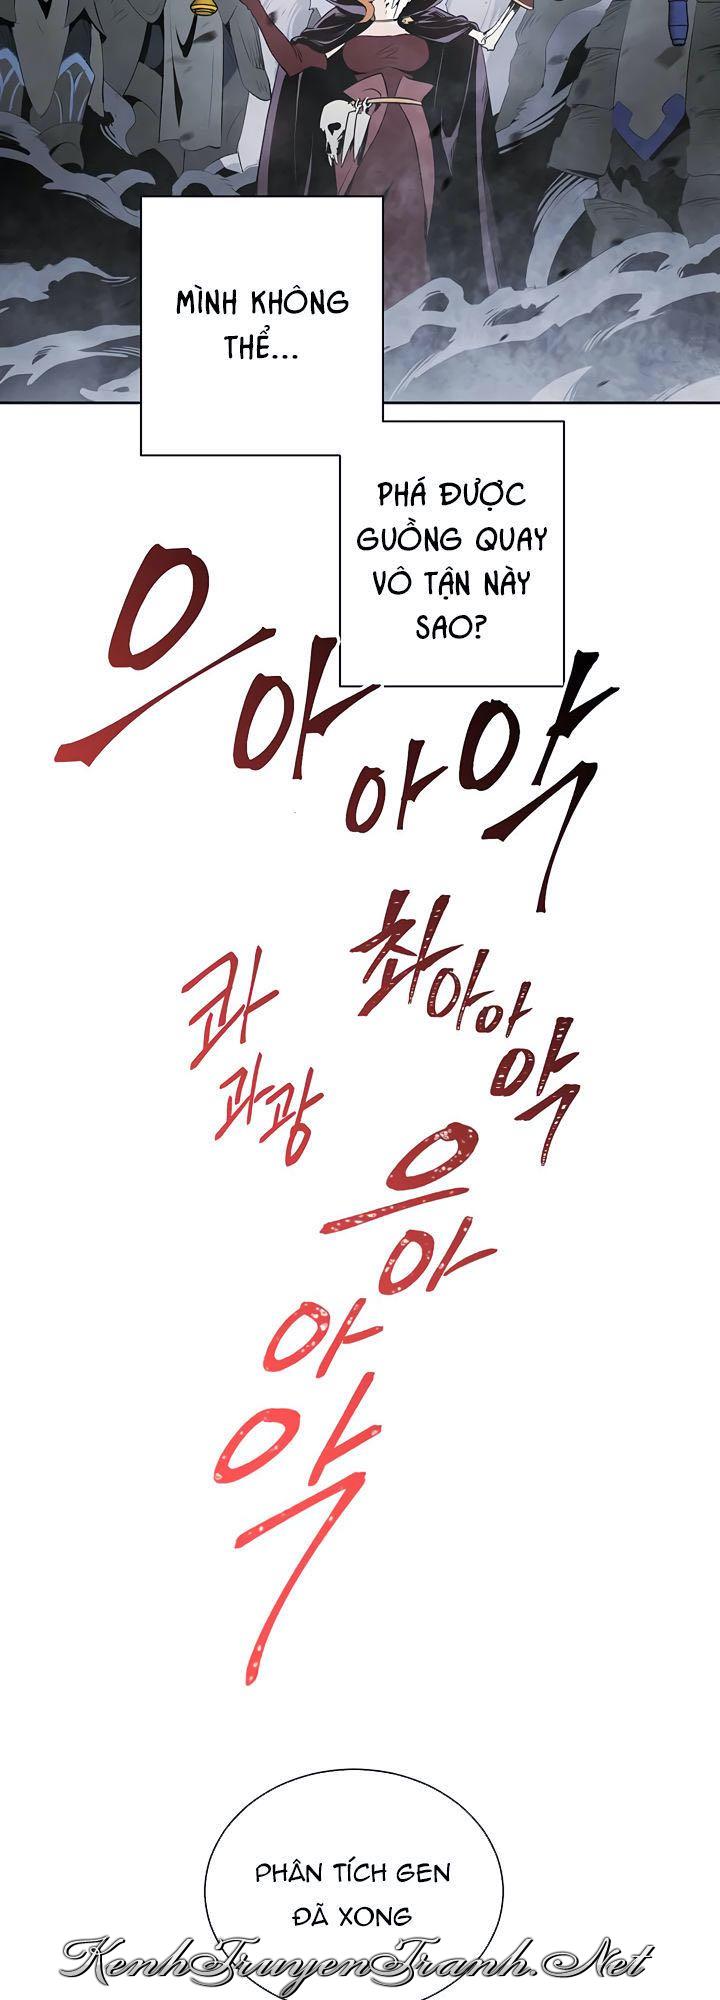 MÌNH KHÔNG
THỂ...
PHÁ ĐƯỢC
GUỒNG QUAY
VÔ TẬN NÀY
SAO?
으아아악
최아아악
콰과광
으아아악
PHÂN TÍCH GEN
ĐÃ XONG
KenhTruyenTranh.Net